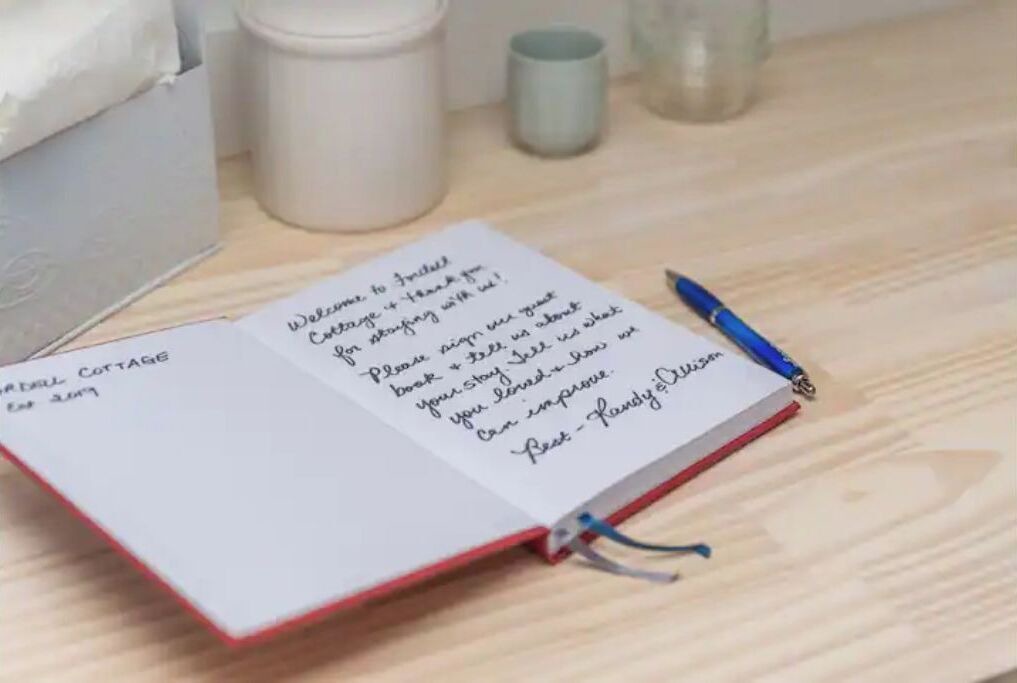 RDELL COTTAGE
Est 2019
Welcome to Fordell
Cottage + thank you
for staying with us!
Please sign our guest
book + tell us about
your stay. Tell us what
you loved + how we
can improve.
Best - Randy & Allison